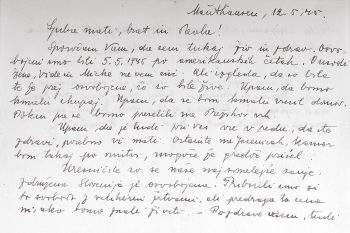 Mauthausen, 12.5.45.
Ljuba mati, brat in Pavla!
Sporočam Vam, da sem tukaj živ in zdrav. Osvo-
bojeni smo bili 5.5.1945 po amerikanskih četah. O usodi
Vide in Mirka ne vem nič. Ali izgleda, da so bile
že prej osvobojene, če so bile žive. Upam, da bomo
kmalu skupaj. Upam, da se bom kmalu vrnil domov.
Potem pa se bomo preselili na
Upam, da je tudi pri vas vse v redu, da ste
zdravi, posebno vi mati. Ostanite na Jesenicah, kamor
bom takoj po vrnitvi, mogoče še predvi prišel.
Uresničile so se naše najsmelejše sanje.
Združena Slovenija je osvobojena. Priborili smo si
to svobodo z velikimi žrtvami, ali predraga ta cena
ni, ako bomo znali živeti. - Pozdrave vsem, tudi